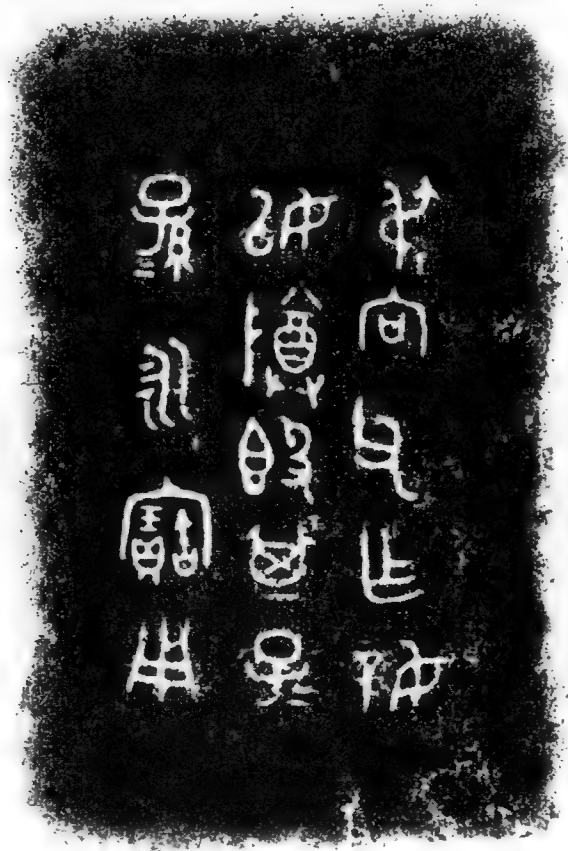 弔向父乍婞
姒尊𣪘其子＝
孫＝永寶用